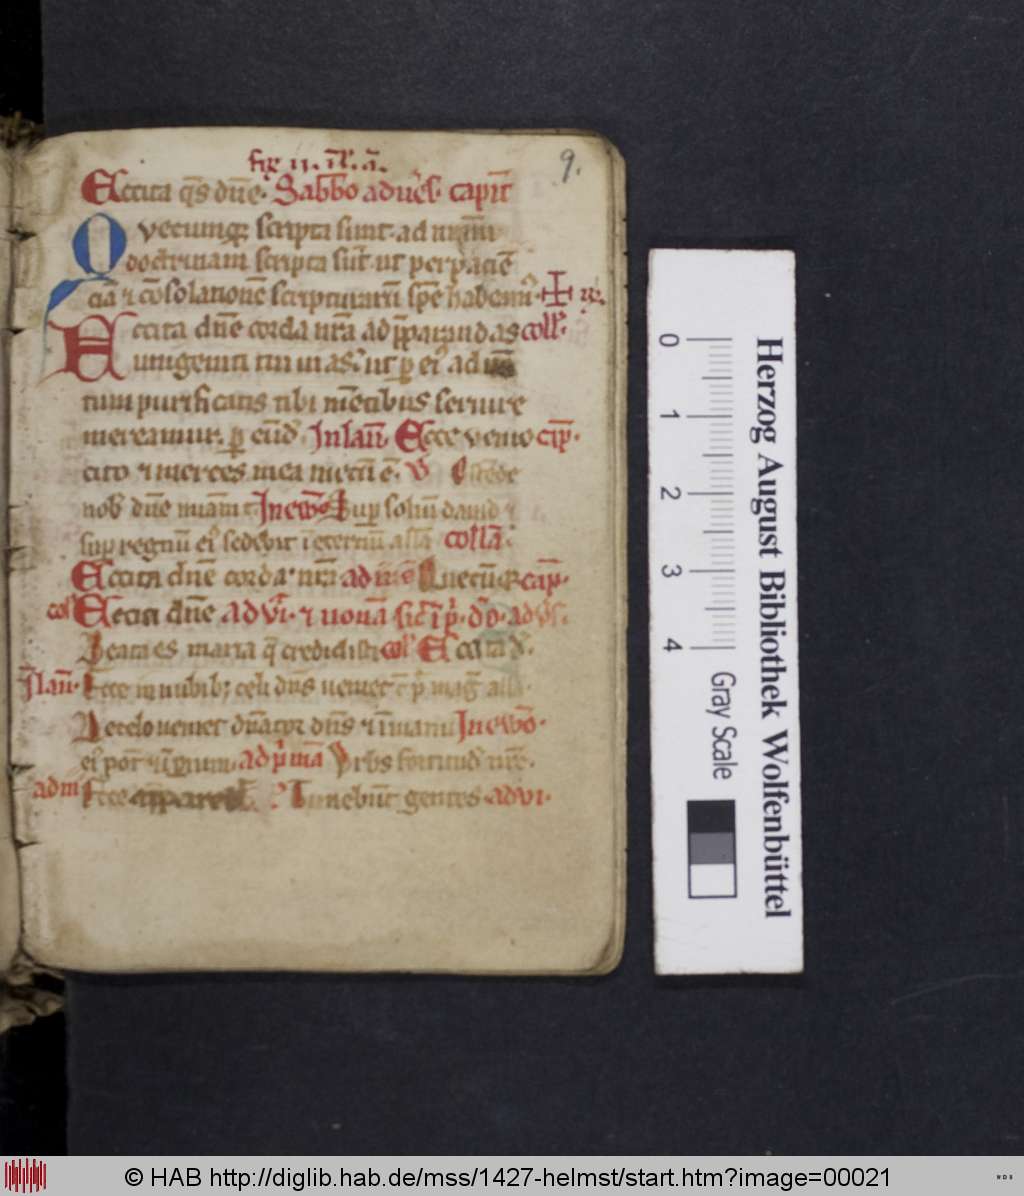 9.
Excita q̄s dn̄e. Sabb̄o aduēs. capit̄
Quecumq; scripta sunt. ad nr̄am
doctrinam scripta sūt ut per paciē
ciā ⁊ cōsolationē scripturarū spē habeam᷒
Excita dn̄e corda nr̄a ad p̄parandas coll᷒.
unigeniti tui uias. ut p̱ ei᷒ aduen
tum purificatis tibi mētibus seruire
mereamur. p̱ eūd̄. In lau᷒. Ecce venio cap̄.
cito ⁊ merces mea mecū ē. V Ostēde
nob̄ dn̄e miam t In ew̄o Sup̱ soliū dauid ⁊
sup̱ regnū ei᷒ sedebit ī eternū all̄a coll̄a.
Excita dn̄e corda nr̄a ad Quecūq; cap̄.
col᷒ Excita dn̄e Ad vi. ⁊ nonā sic̄ ī p̄. dō. adv̄s.
Beata es maria q̄ credidisti col᷒ Excita d̄.
In lau᷒. Ecce in nubib; celi dn̄s ueniet c̄ p̄ maḡ all̄.
De celo veniet dn̄ator dn̄s ⁊ ī manu In ew̄o.
ei᷒ pot̄ ⁊ īp̱ium. ad p̄mā Vrbs fortitud̄ nr̄e.
ad iii Ecce apparebit Tunc ebūt gentes. ad vi.
0
1
2
3
4
Gray Scale
Herzog August Bibliothek Wolfenbüttel
© HAB http://diglib.hab.de/mss/1427-helmst/start.htm?image=00021